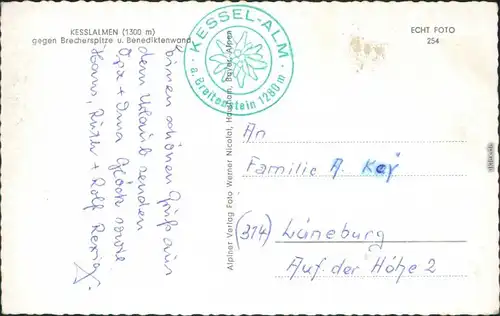 KESSLALMEN (1300 m)
gegen Brecherspitze u. Benediktenwand
ECHT FOTO
254
· KESSEL-ALM ·
a. Breitenstein 1280 m
einen schönen Gruß aus
dem Urlaub senden
Opa + Oma Glöck sowie
Hans, Ruth + Rolf
Alpiner Verlag Foto Werner Nicolai, Hausham, Bayer. Alpen
An
Familie A. Key
(314) Lüneburg
Auf der Höhe 2